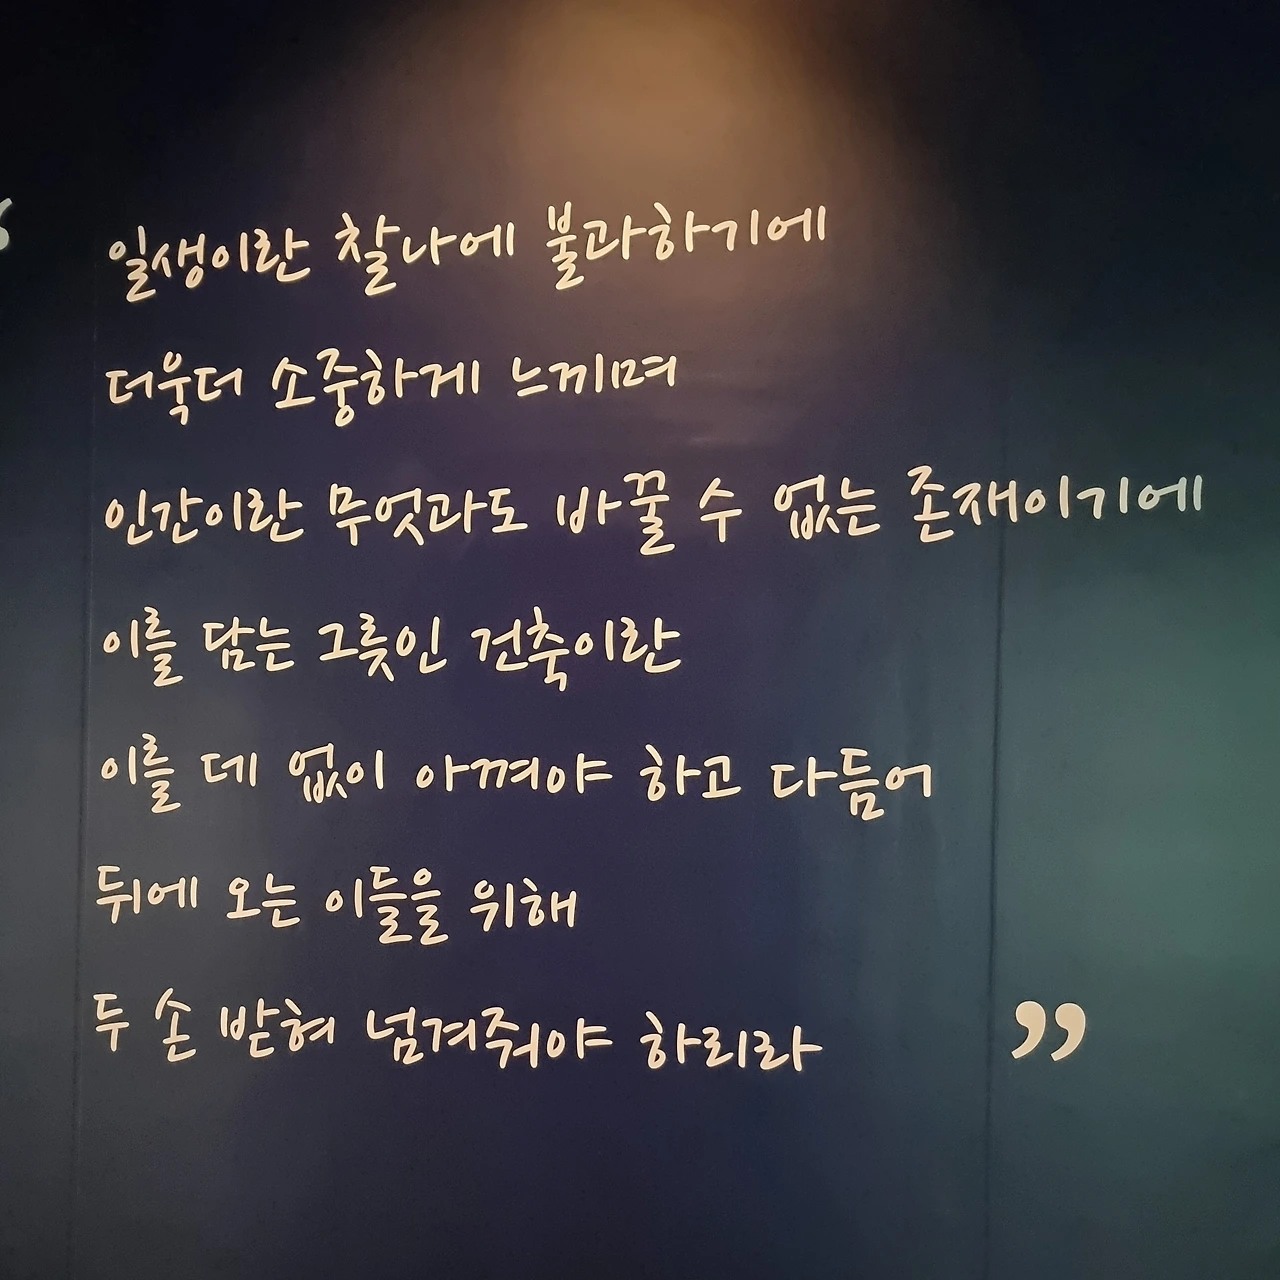 일생이란 찰나에 불과하기에
더욱더 소중하게 느끼며
인간이란 무엇과도 바꿀 수 없는 존재이기에
이를 담는 그릇인 건축이란
이를 데 없이 아껴야 하고 다듬어
뒤에 오는 이들을 위해
두 손 받혀 넘겨줘야 하리라 ”